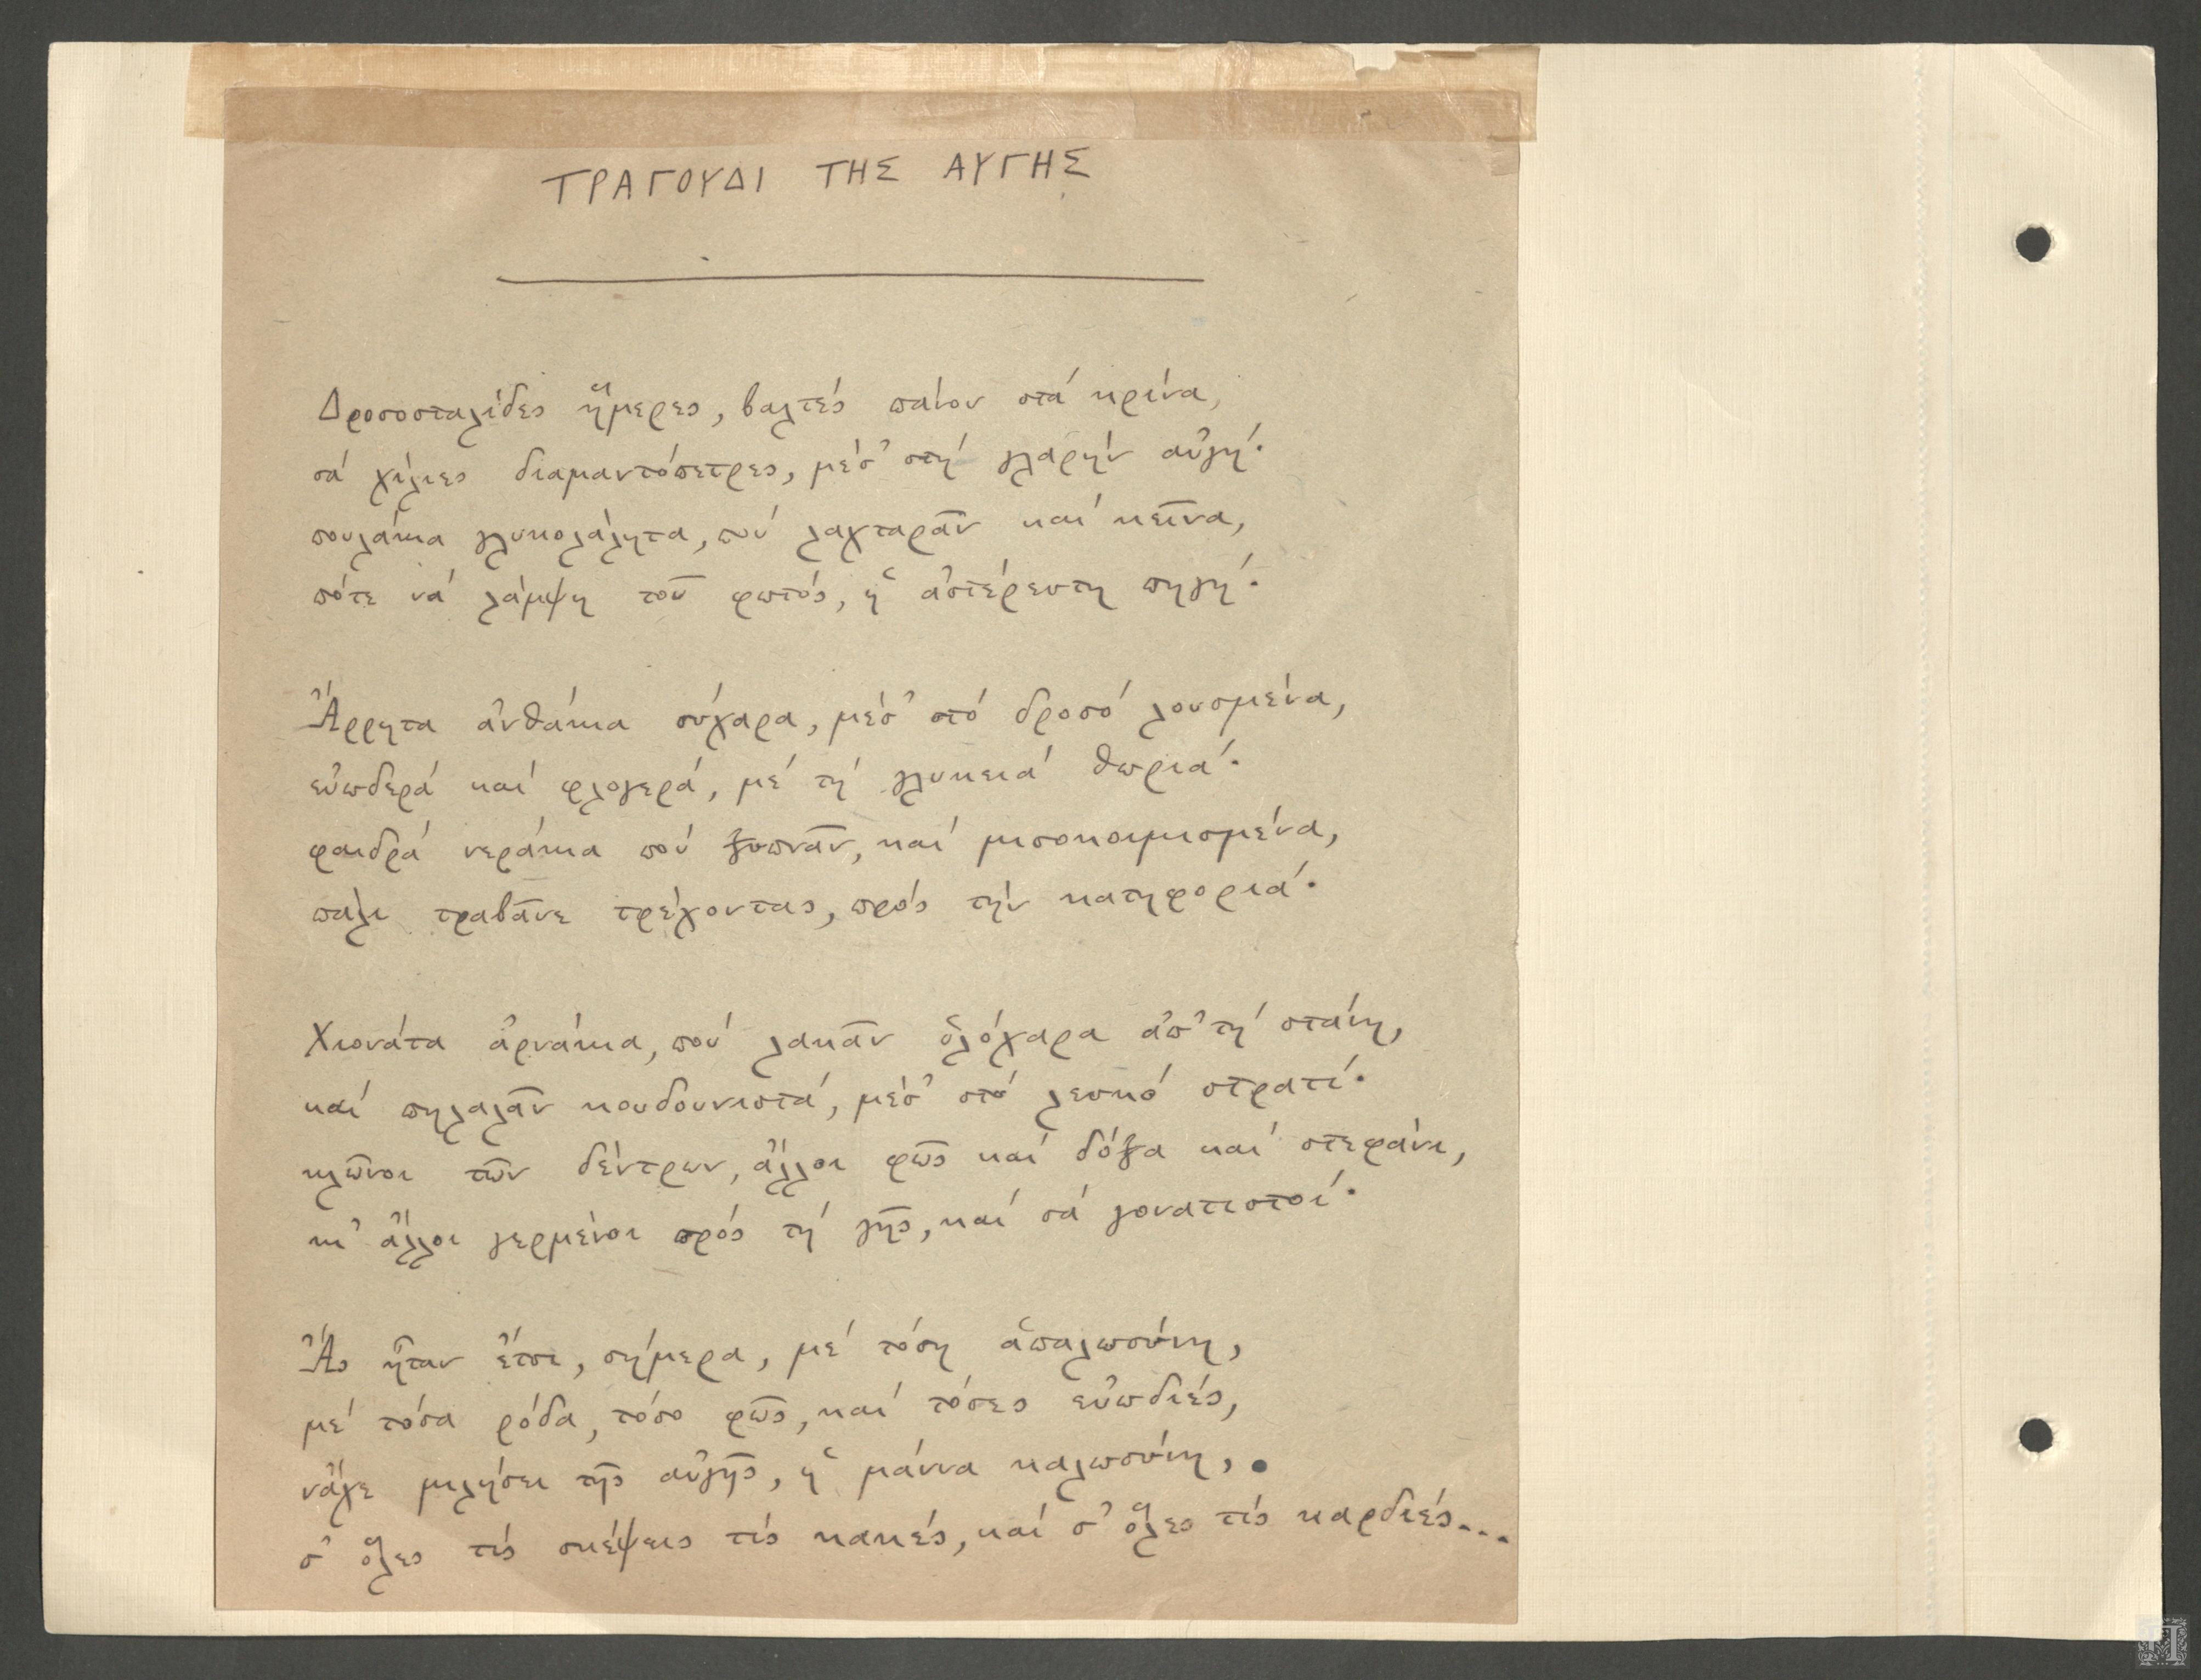 ΤΡΑΓΟΥΔΙ ΤΗΣ ΑΥΓΗΣ
Δροσοσταλίδες ἥμερες, βαλτές πάνου στά κρίνα,
σά χίλιες διαμαντόπετρες, μέσ' στή γλαρήν αὐγή·
πουλάκια γλυκολάλητα, πού λαχταρᾶν καί κεῖνα,
πότε νά λάμψη τοῦ φωτός, ἡ ἀστέρευτη πηγή·
Ἄρρητα ἀνθάκια σύχαρα, μέσ' στό δροσό λουσμένα,
εὐωδερά καί φλογερά, μέ τή γλυκειά θωριά·
φαιδρά νεράκια πού ξυπνᾶν, καί μισοκοιμισμένα,
πάλι τραβᾶνε τρέχοντας, πρός τήν κατηφοριά·
Χιονάτα ἀρνάκια, πού λακᾶν ὁλόχαρα ἀπ' τή στάνη,
καί πηλαλᾶν κουδουνιστά, μέσ' στό λευκό στρατί·
κλῶνοι τῶν δέντρων, ἄλλοι φῶς καί δόξα καί στεφάνι,
κι' ἄλλοι γερμένοι πρός τή γῆς, καί σά γονατιστοί·
Ἄς ἦταν ἔτσι, σήμερα, μέ τόση ἁπαλωσύνη,
μέ τόσα ρόδα, τόσο φῶς, καί τόσες εὐωδιές,
νἄχε μιλήσει τῆς αὐγῆς, ἡ μάννα καλωσύνη,.
σ' ὅλες τίς σκέψεις τίς κακές, καί σ' ὅλες τίς καρδιές...